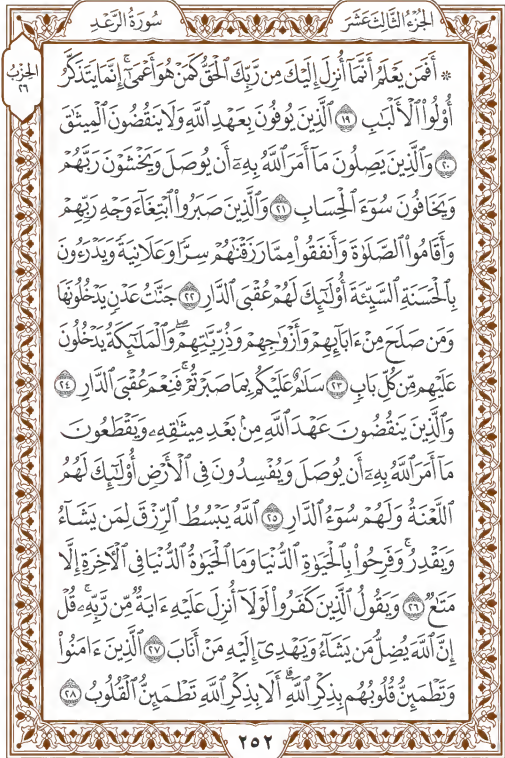 الجزء الثالث عشر
سورة الرعد
الحزب
٢٦
۞ أَفَمَن يَعْلَمُ أَنَّمَآ أُنزِلَ إِلَيْكَ مِن رَّبِّكَ ٱلْحَقُّ كَمَنْ هُوَ أَعْمَىٰٓ ۚ إِنَّمَا يَتَذَكَّرُ
أُو۟لُوا۟ ٱلْأَلْبَٰبِ ١٩ ٱلَّذِينَ يُوفُونَ بِعَهْدِ ٱللَّهِ وَلَا يَنقُضُونَ ٱلْمِيثَٰقَ
٢٠ وَٱلَّذِينَ يَصِلُونَ مَآ أَمَرَ ٱللَّهُ بِهِۦٓ أَن يُوصَلَ وَيَخْشَوْنَ رَبَّهُمْ
وَيَخَافُونَ سُوٓءَ ٱلْحِسَابِ ٢١ وَٱلَّذِينَ صَبَرُوا۟ ٱبْتِغَآءَ وَجْهِ رَبِّهِمْ
وَأَقَامُوا۟ ٱلصَّلَوٰةَ وَأَنفَقُوا۟ مِمَّا رَزَقْنَٰهُمْ سِرًّا وَعَلَانِيَةً وَيَدْرَءُونَ
بِٱلْحَسَنَةِ ٱلسَّيِّئَةَ أُو۟لَٰٓئِكَ لَهُمْ عُقْبَى ٱلدَّارِ ٢٢ جَنَّٰتُ عَدْنٍ يَدْخُلُونَهَا
وَمَن صَلَحَ مِنْ ءَابَآئِهِمْ وَأَزْوَٰجِهِمْ وَذُرِّيَّٰتِهِمْ ۖ وَٱلْمَلَٰٓئِكَةُ يَدْخُلُونَ
عَلَيْهِم مِّن كُلِّ بَابٍ ٢٣ سَلَٰمٌ عَلَيْكُم بِمَا صَبَرْتُمْ ۚ فَنِعْمَ عُقْبَى ٱلدَّارِ ٢٤
وَٱلَّذِينَ يَنقُضُونَ عَهْدَ ٱللَّهِ مِنۢ بَعْدِ مِيثَٰقِهِۦ وَيَقْطَعُونَ
مَآ أَمَرَ ٱللَّهُ بِهِۦٓ أَن يُوصَلَ وَيُفْسِدُونَ فِى ٱلْأَرْضِ أُو۟لَٰٓئِكَ لَهُمُ
ٱللَّعْنَةُ وَلَهُمْ سُوٓءُ ٱلدَّارِ ٢٥ ٱللَّهُ يَبْسُطُ ٱلرِّزْقَ لِمَن يَشَآءُ
وَيَقْدِرُ ۚ وَفَرِحُوا۟ بِٱلْحَيَوٰةِ ٱلدُّنْيَا وَمَا ٱلْحَيَوٰةُ ٱلدُّنْيَا فِى ٱلْءَاخِرَةِ إِلَّا
مَتَٰعٌ ٢٦ وَيَقُولُ ٱلَّذِينَ كَفَرُوا۟ لَوْلَآ أُنزِلَ عَلَيْهِ ءَايَةٌ مِّن رَّبِّهِۦ ۗ قُلْ
إِنَّ ٱللَّهَ يُضِلُّ مَن يَشَآءُ وَيَهْدِىٓ إِلَيْهِ مَنْ أَنَابَ ٢٧ ٱلَّذِينَ ءَامَنُوا۟
وَتَطْمَئِنُّ قُلُوبُهُم بِذِكْرِ ٱللَّهِ ۗ أَلَا بِذِكْرِ ٱللَّهِ تَطْمَئِنُّ ٱلْقُلُوبُ ٢٨
٢٥٢